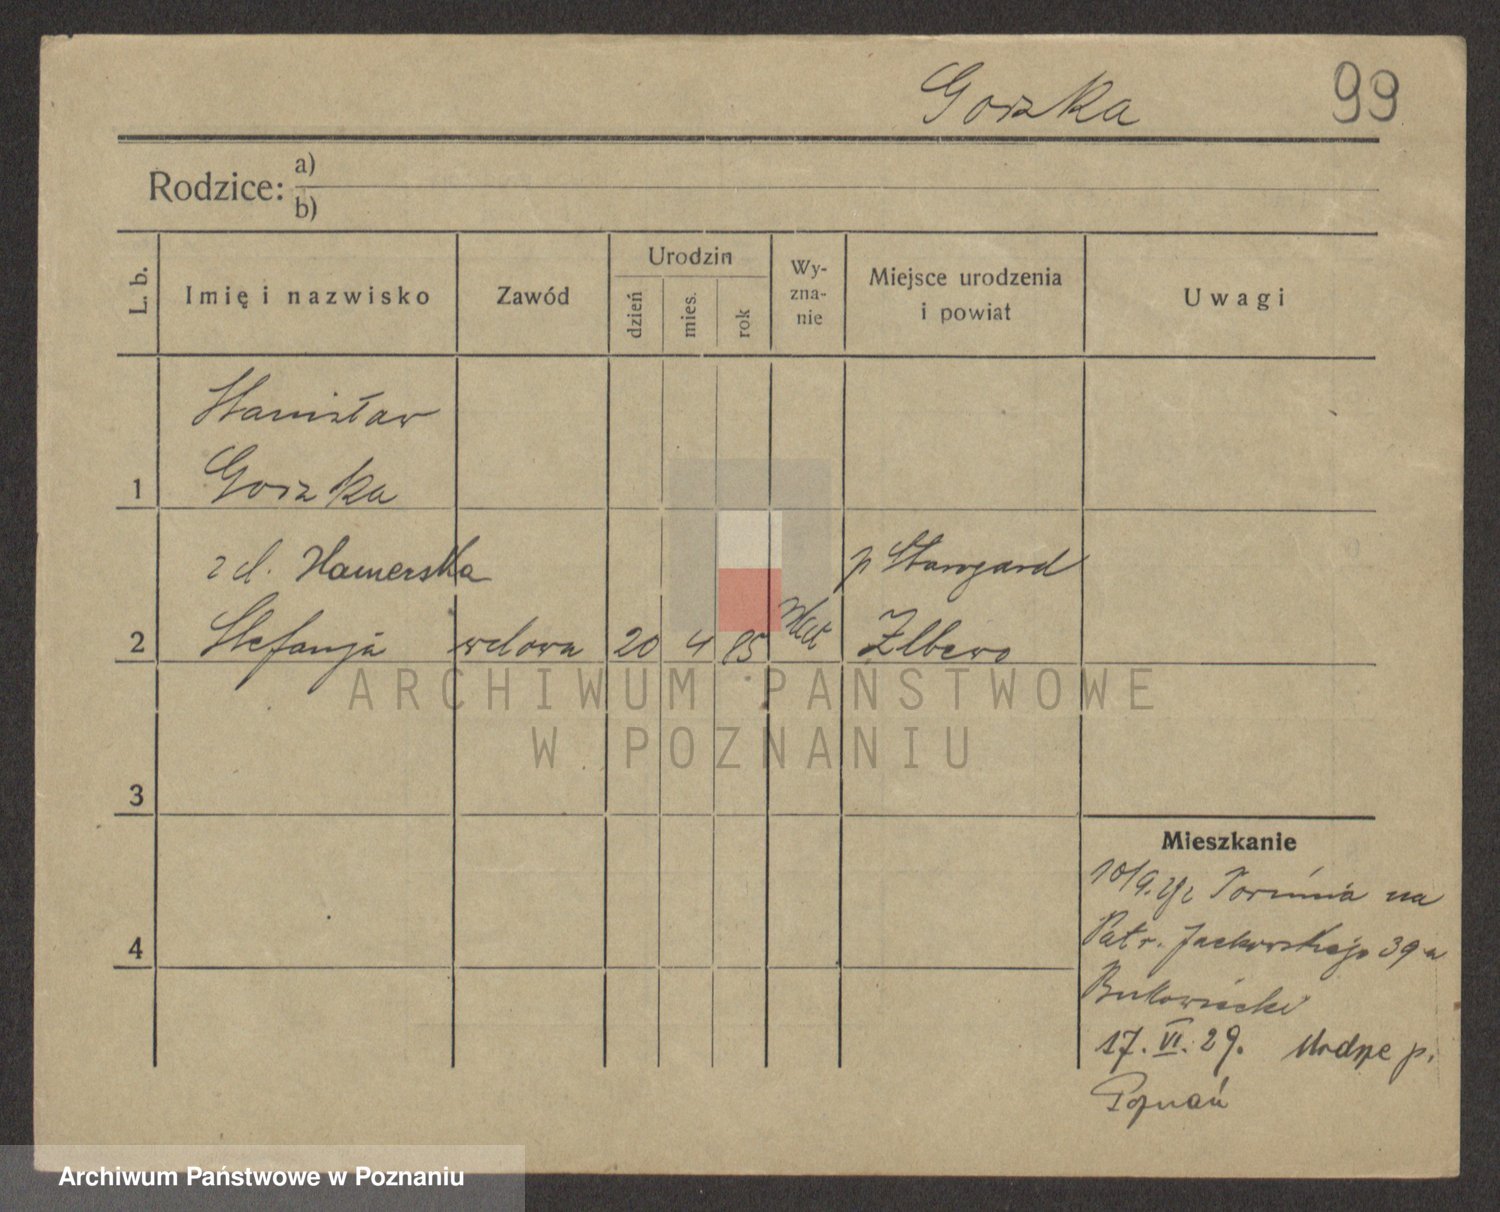 Gorzka 99
Rodzice: a)
b)
L. b. Imię i nazwisko Zawód Urodzin dzień mies. rok Wy-
zna-
nie Miejsce urodzenia
i powiat Uwagi
Stanisław
1 Gorzka
z d. Hamerska p Stargard
2 Stefanja wdowa 20 4 85 kat Zlbewo
ARCHIWUM PAŃSTWOWE
W POZNANIU
3
Mieszkanie
10/9. Torunia na
4 Patr. Jackowskiego 39 a
Bukowiecki
17. VI. 29. p.
Poznań
Archiwum Państwowe w Poznaniu